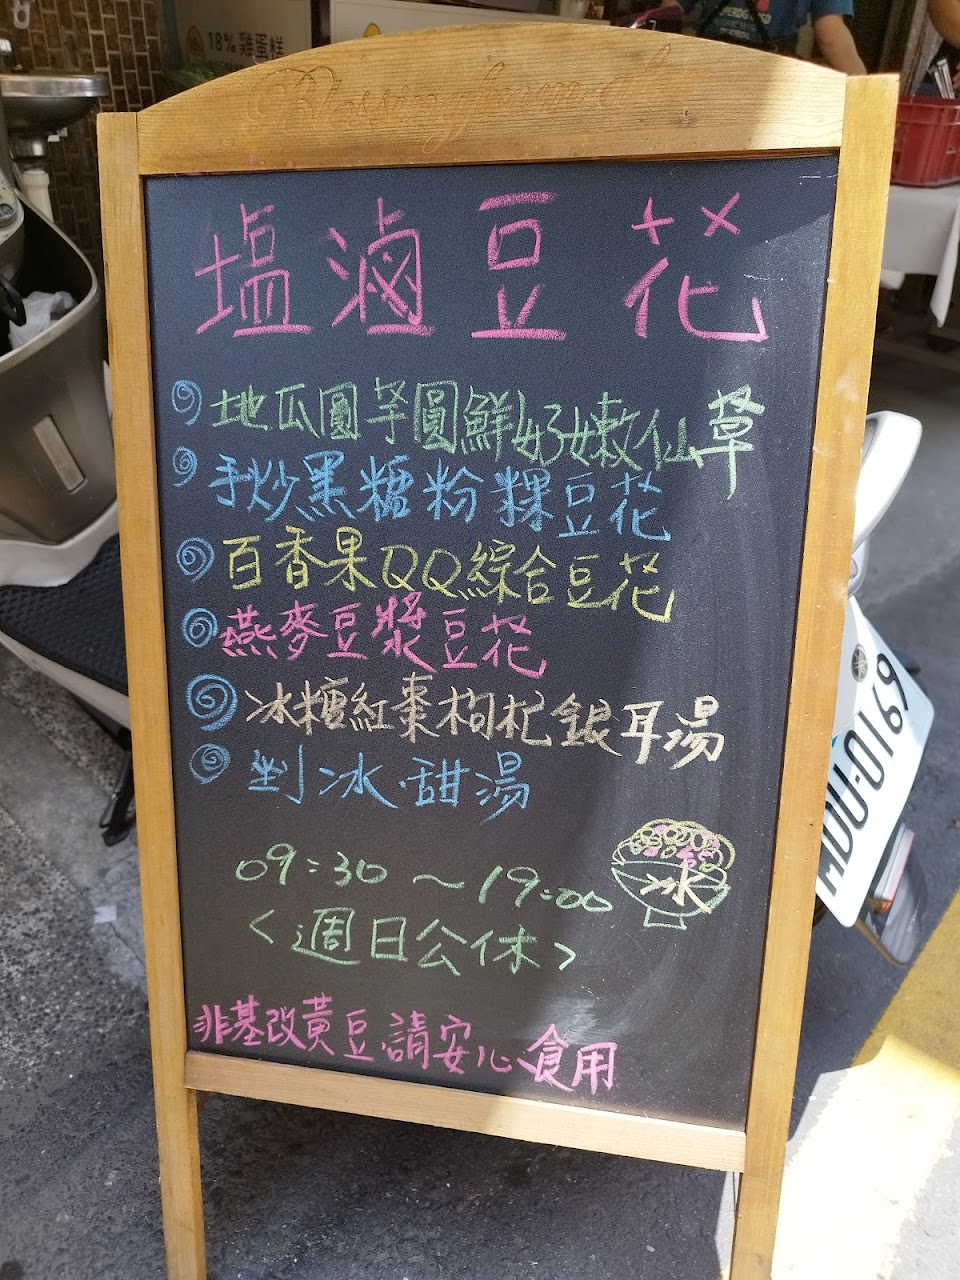 18%雞蛋糕
Blessing from
塩滷豆花
地瓜圓芋圓鮮奶嫩仙草
手炒黑糖粉粿豆花
百香果QQ綜合豆花
燕麥豆漿豆花
冰糖紅棗枸杞銀耳湯
剉冰.甜湯
09:30~19:00
冰
<週日公休>
非基改黃豆.請安心食用
ADU-0169